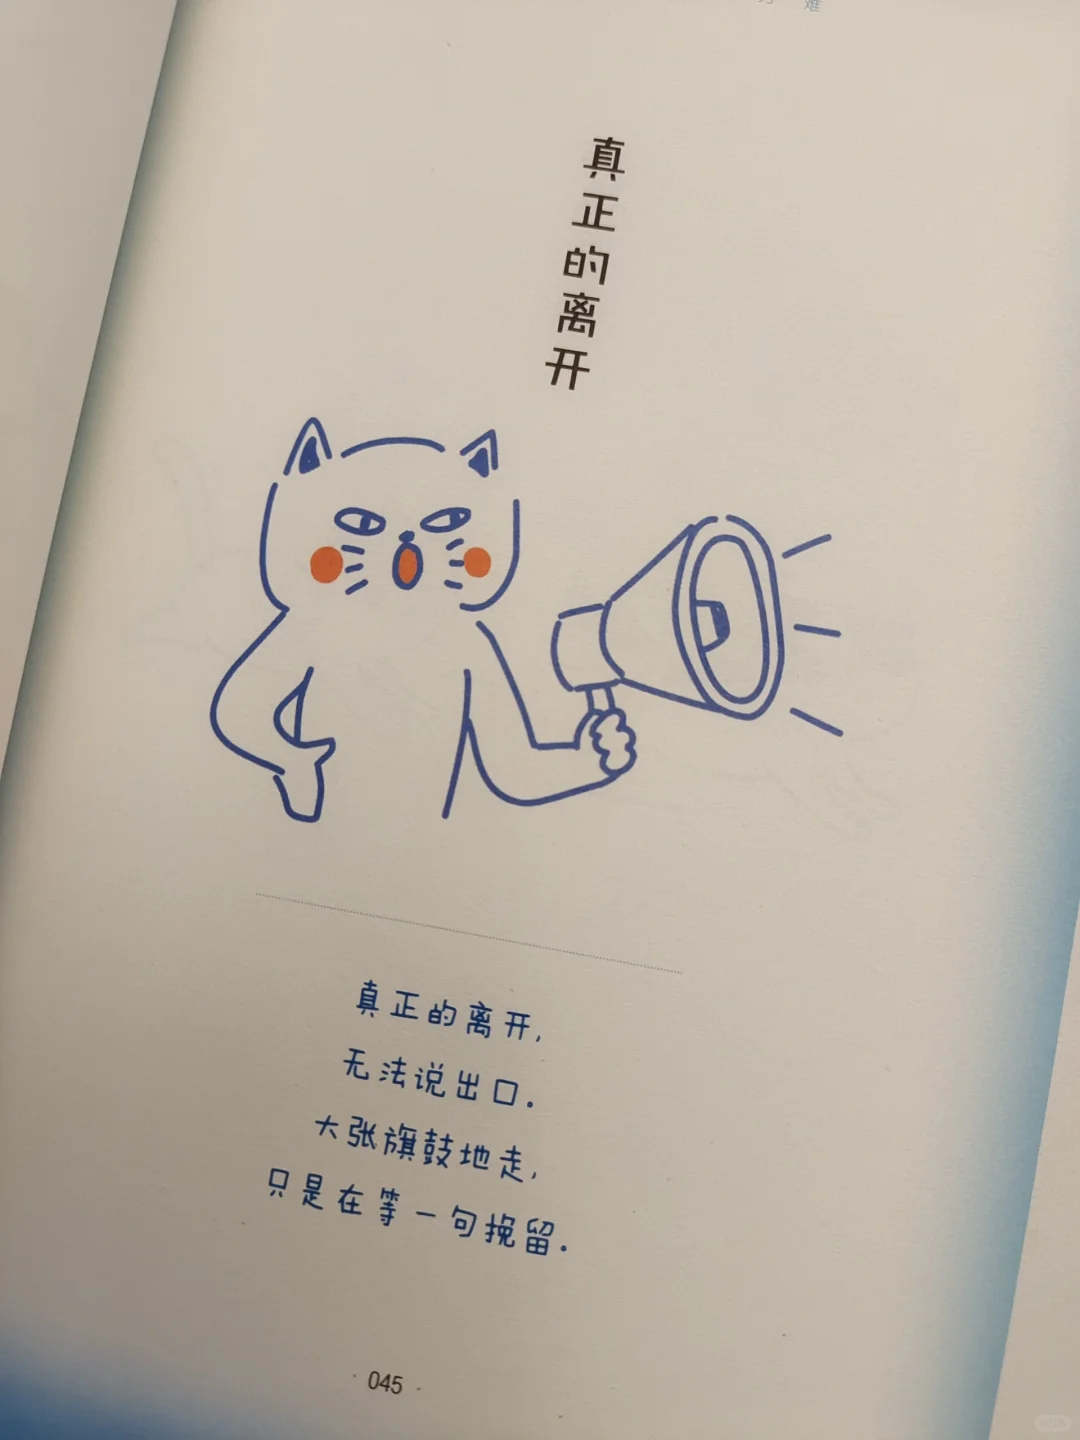 难
真正的离开
真正的离开,
无法说出口.
大张旗鼓地走,
只是在等一句挽留.
· 045 ·